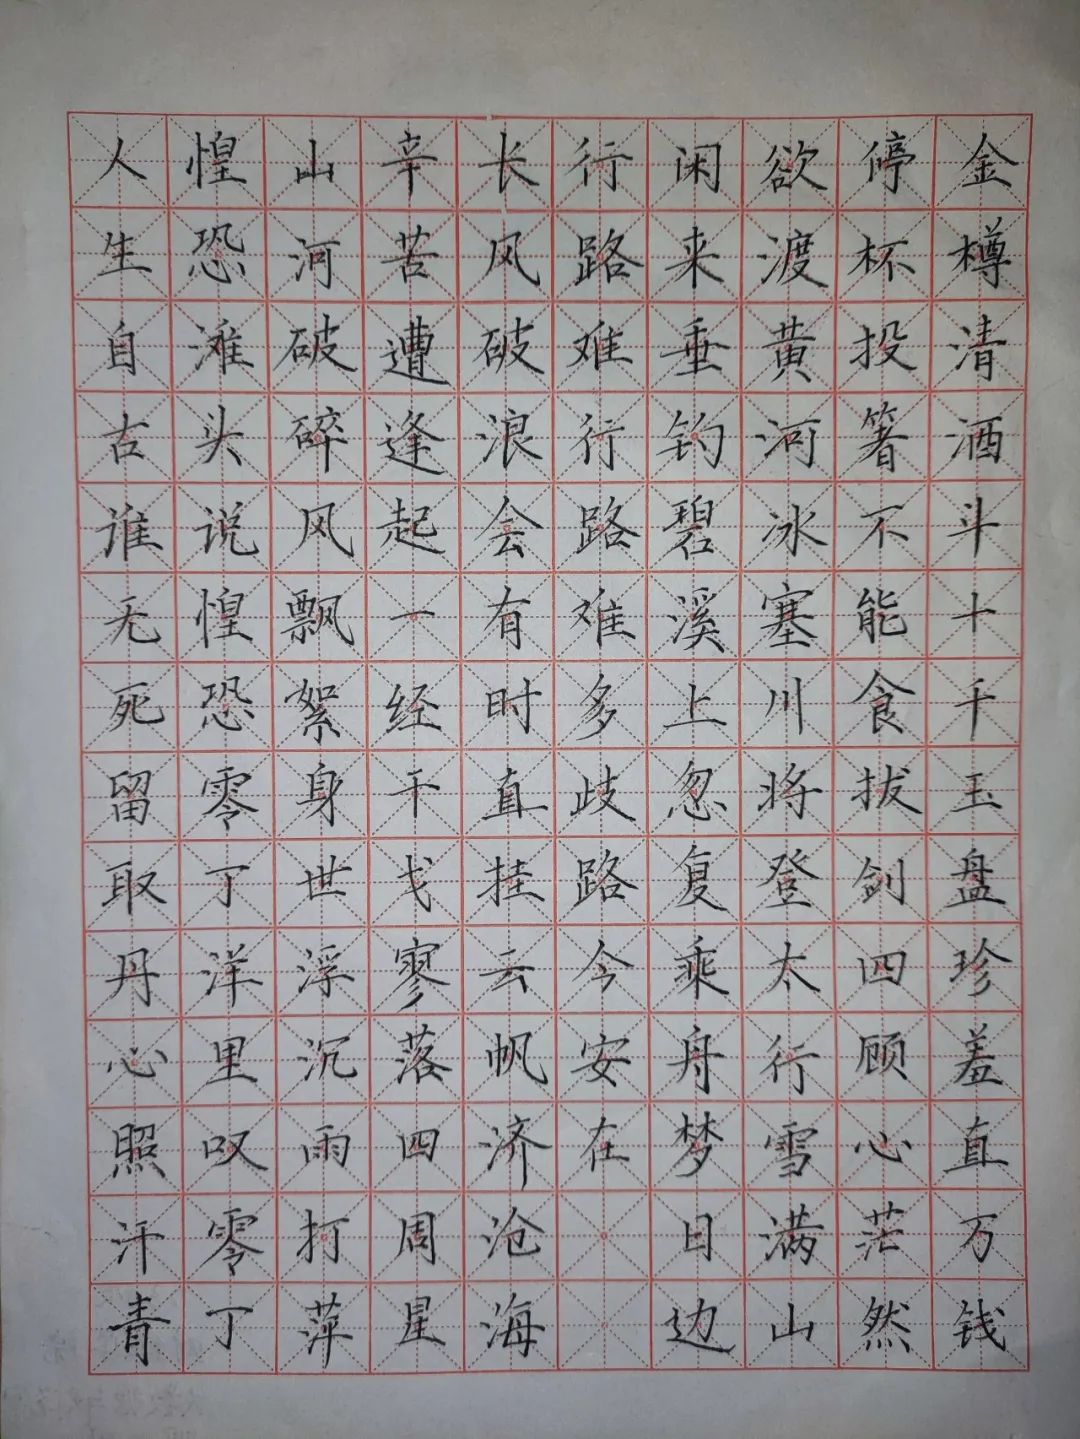 金樽清酒斗十千玉盘珍羞直万钱
停杯投箸不能食拔剑四顾心茫然
欲渡黄河冰塞川将登太行雪满山
闲来垂钓碧溪上忽复乘舟梦日边
行路难行路难多歧路今安在
长风破浪会有时直挂云帆济沧海
辛苦遭逢起一经干戈寥落四周星
山河破碎风飘絮身世浮沉雨打萍
惶恐滩头说惶恐零丁洋里叹零丁
人生自古谁无死留取丹心照汗青